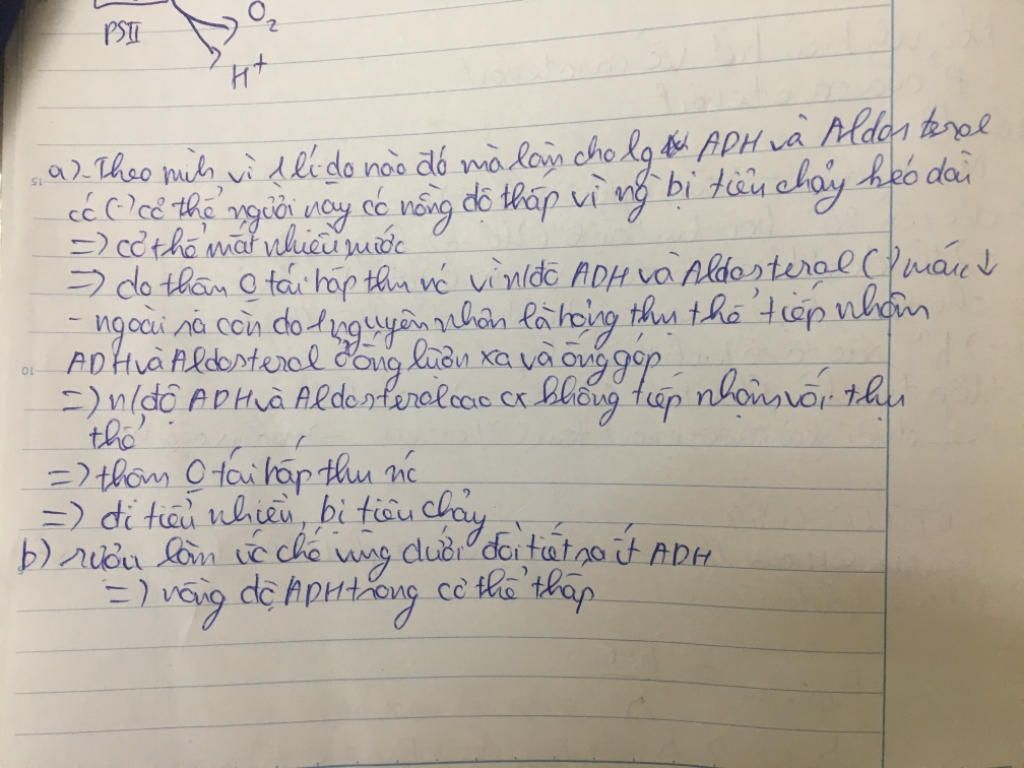 PSII
O₂
H⁺
a) - Theo mình vì 1 lí do nào đó mà làm cho lg ADH và Aldosterol
có (-) cơ thể người này có nồng độ thấp vì ng bị tiêu chảy kéo dài
=> cơ thể mất nhiều nước
=> do thận O tái hấp thu nc vì n/độ ADH và Aldosterol (-) máu ↓
- ngoài ra còn do 1 nguyên nhân là hỏng thụ thể tiếp nhận
ADH và Aldosterol ở ống lượn xa và ống góp
=> n/độ ADH và Aldosterol cao cx không tiếp nhận với thụ
thể
=> thận O tái hấp thu nc
=> đi tiểu nhiều, bị tiêu chảy
b) rượu làm ức chế vùng dưới đồi tiết ra ít ADH
=> nồng độ ADH trong cơ thể thấp